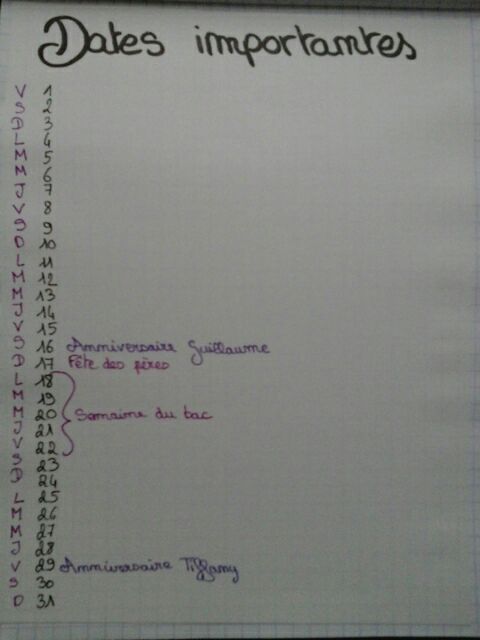 Dates importantes
V 1
S 2
D 3
L 4
M 5
M 6
J 7
V 8
S 9
D 10
L 11
M 12
M 13
J 14
V 15
S 16 Anniversaire Guillaume
D 17 Fête des pères
L 18
M 19
M 20 Semaine du bac
J 21
V 22
S 23
D 24
L 25
M 26
M 27
J 28
V 29 Anniversaire Tiffany
S 30
D 31